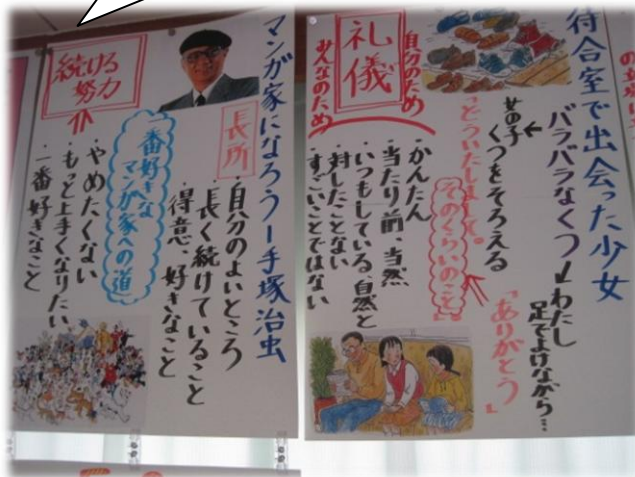 待合室で出会った少女
バラバラなくつ
わたし
足でよけながら…
「ありがとう」
女の子
くつをそろえる
「どういたしまして。
そのくらいのこと」
自分のため
礼儀
みんなのため
・かんたん
・当たり前、当然
・いつもしている、自然と
・対したことない
・すごいことではない
マンガ家になろうー手塚治虫
長所
・自分のよいところ
・長く続けていること
・得意、好きなこと
一番好きな
マンガ家への道
・やめたくない
・もっと上手くなりたい
・一番好きなこと
続ける
努力